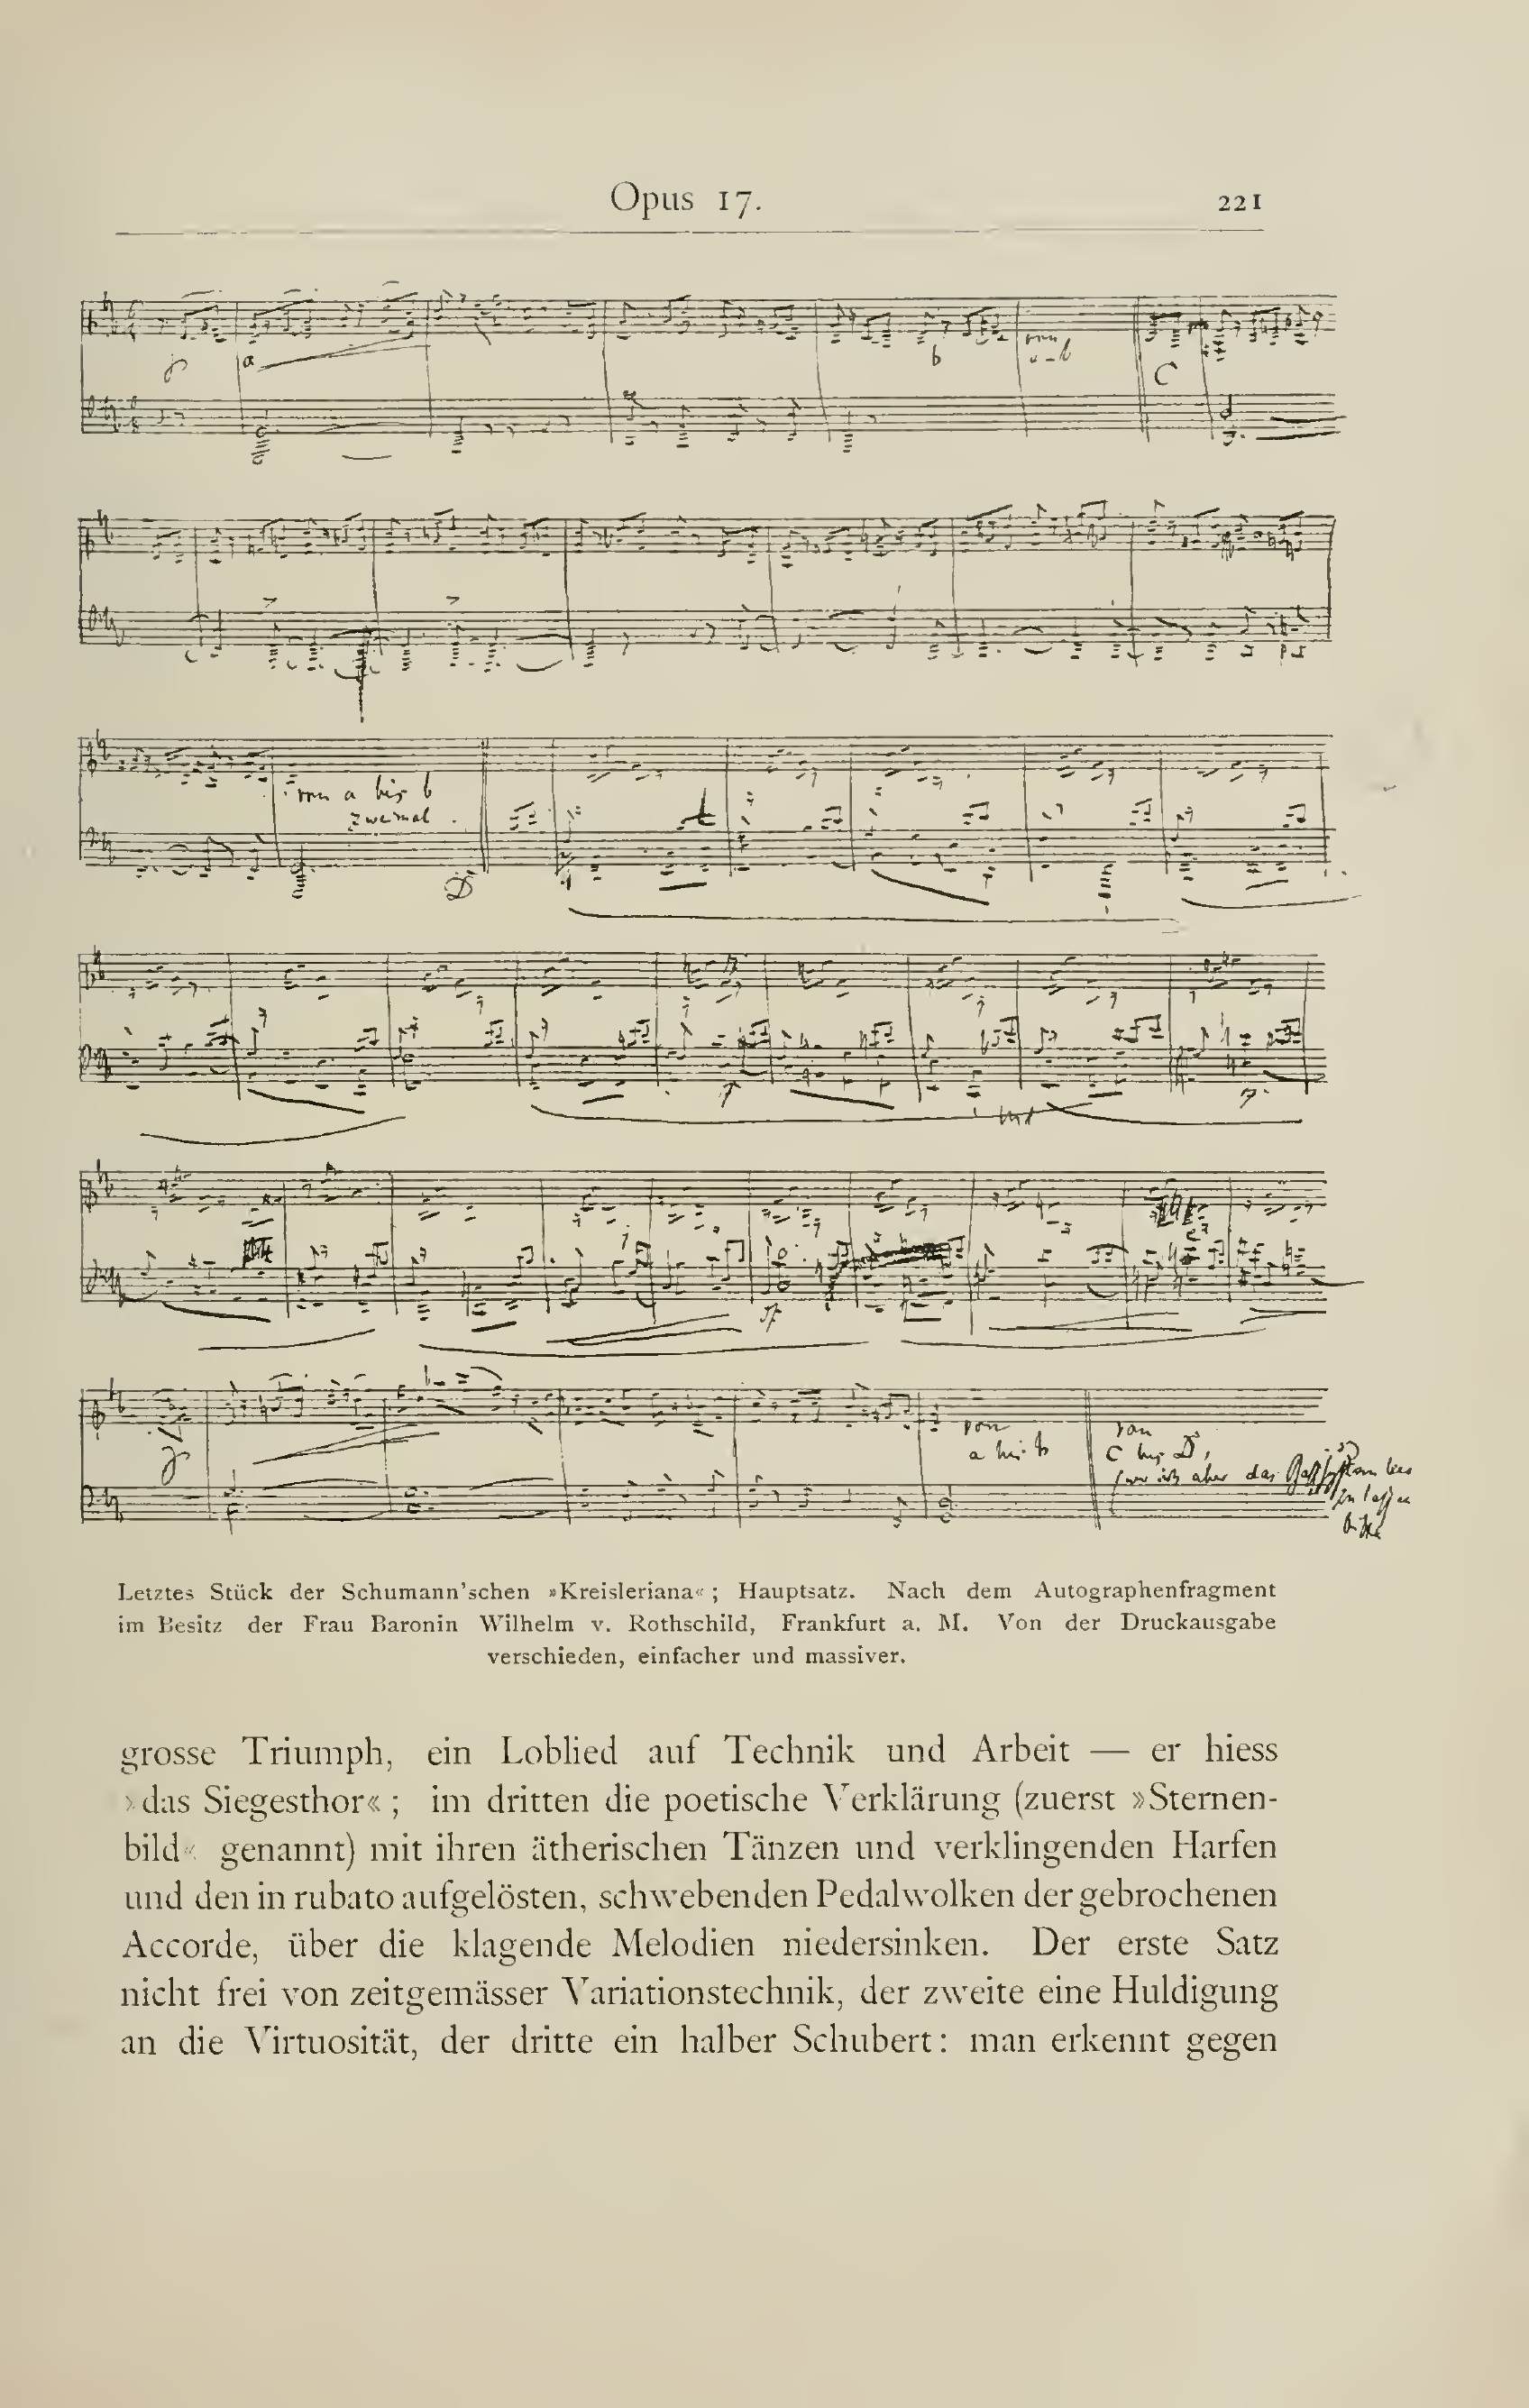 Opus 17.
221
a
b
von
a-b
C
von a bis b
zweimal.
D
von
a bis b
von
C bis D,
aber das
Letztes Stück der Schumann'schen »Kreisleriana«; Hauptsatz. Nach dem Autographenfragment
im Besitz der Frau Baronin Wilhelm v. Rothschild, Frankfurt a. M. Von der Druckausgabe
verschieden, einfacher und massiver.
grosse Triumph, ein Loblied auf Technik und Arbeit — er hiess
›das Siegesthor«; im dritten die poetische Verklärung (zuerst »Sternen-
bild« genannt) mit ihren ätherischen Tänzen und verklingenden Harfen
und den in rubato aufgelösten, schwebenden Pedalwolken der gebrochenen
Accorde, über die klagende Melodien niedersinken. Der erste Satz
nicht frei von zeitgemässer Variationstechnik, der zweite eine Huldigung
an die Virtuosität, der dritte ein halber Schubert: man erkennt gegen